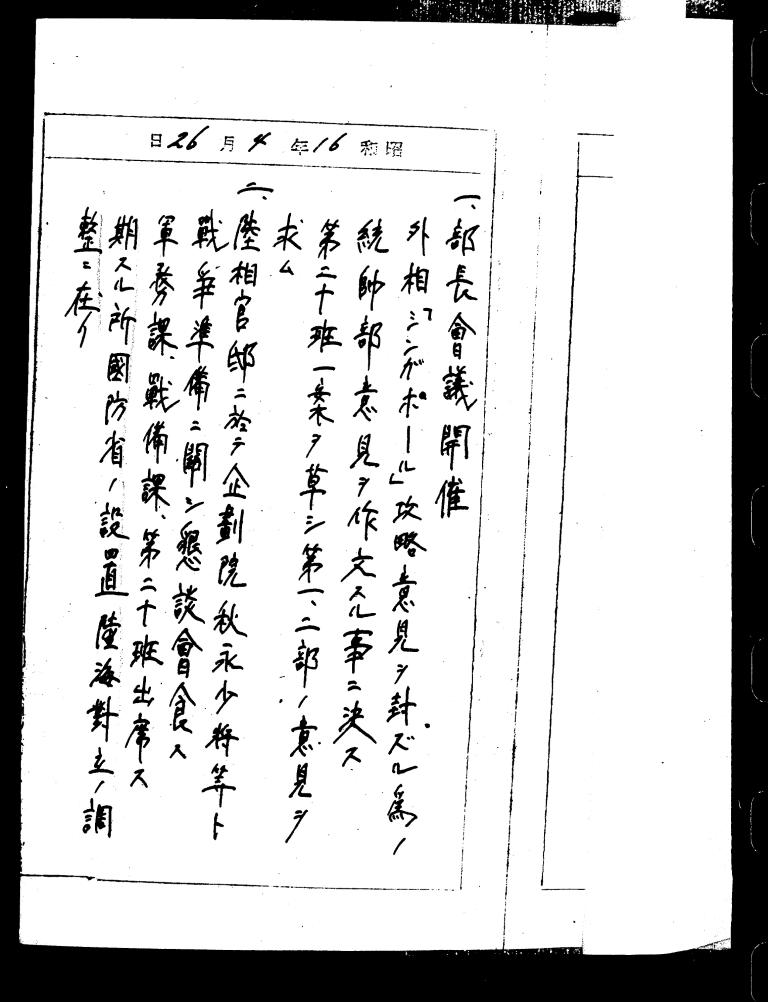 昭和16年4月26日
一、部長會議開催
外相「シンガポール」攻略意見ヲ封ズル爲ノ
統帥部意見ヲ作文スル事ニ決ス
第二十班一案ヲ草シ第一、二部ノ意見ヲ
求ム
二、陸相官邸ニ於テ企劃院秋永少将等ト
戰爭準備ニ關シ懇談會食ス
軍務課、戰備課、第二十班出席ス
期スル所國防省ノ設置陸海對立ノ調
整ニ在リ